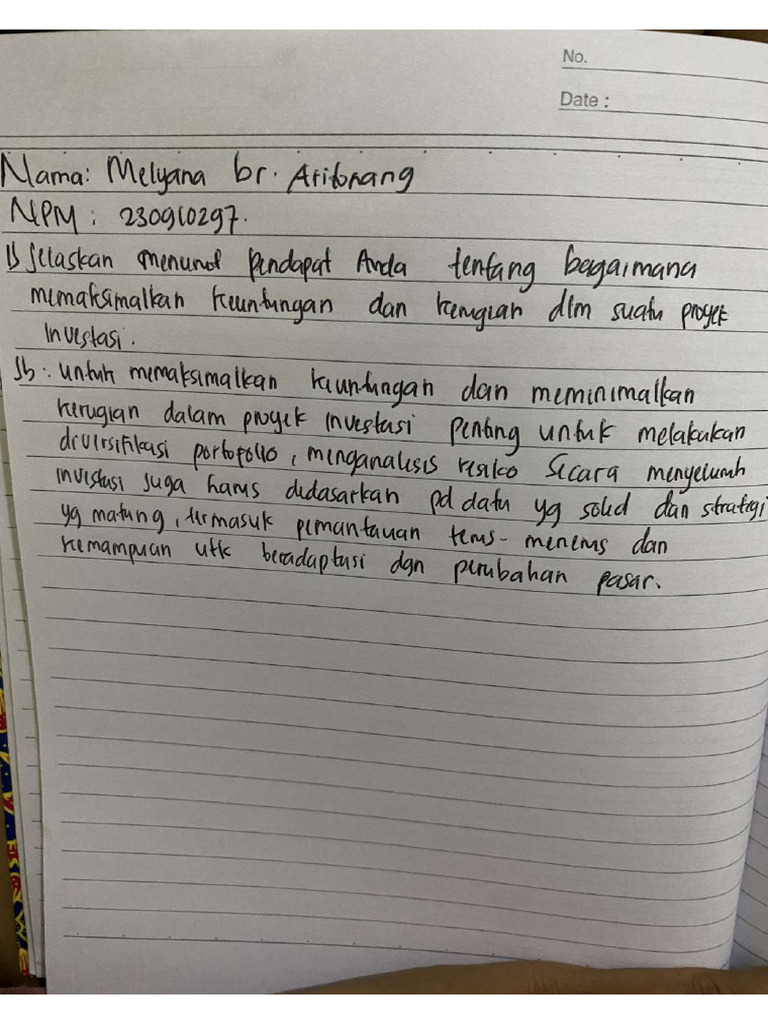 No.
Date :
Nama: Melyana br. Aritonang
NPM : 230910297.
1) Jelaskan menurut pendapat Anda tentang bagaimana
memaksimalkan keuntungan dan kerugian dlm suatu proyek
investasi.
Jb : untuk memaksimalkan keuntungan dan meminimalkan
kerugian dalam proyek investasi penting untuk melakukan
diversifikasi portofolio, menganalisis resiko secara menyeluruh
investasi juga harus didasarkan pd data yg solid dan strategi
yg matang, termasuk pemantauan terus-menerus dan
kemampuan utk beradaptasi dgn perubahan pasar.